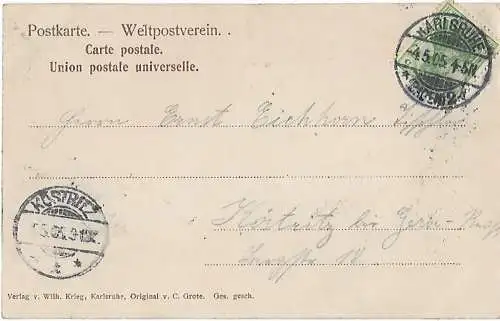 Postkarte. — Weltpostverein. .
Carte postale.
Union postale universelle.
KARLSRUHE
-4.5.05. 4-5N.
Herrn Ernst Eichhorn
KÖSTRITZ
Köstritz bei Gera-
Verlag v. Wilh. Krieg, Karlsruhe, Original v. C. Grote. Ges. gesch.